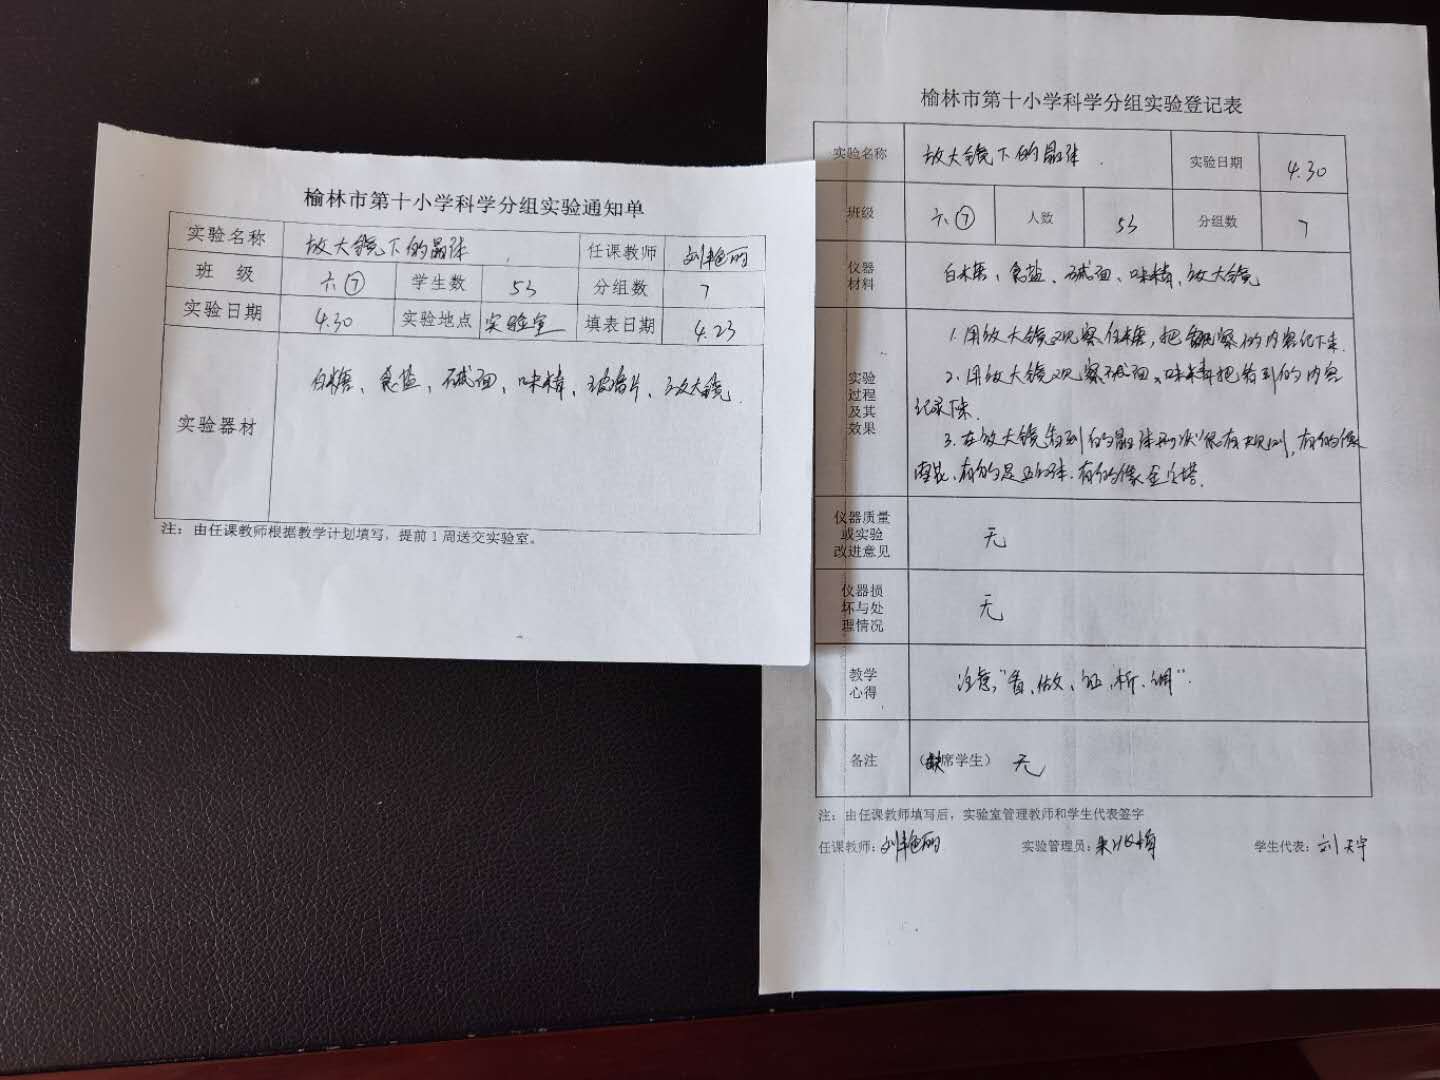 榆林市第十小学科学分组实验通知单
实验名称 放大镜下的晶体 任课教师 刘艳丽
班 级 六⑦ 学生数 53 分组数 7
实验日期 4.30 实验地点 实验室 填表日期 4.23
实验器材 白糖、食盐、碱面、味精、玻璃片、放大镜
注：由任课教师根据教学计划填写，提前1周送交实验室。
榆林市第十小学科学分组实验登记表
实验名称 放大镜下的晶体 实验日期 4.30
班级 六⑦ 人数 53 分组数 7
仪器材料 白糖、食盐、碱面、味精、放大镜
实验过程及其效果
1.用放大镜观察白糖，把观察的内容记下来.
2.用放大镜观察碱面、味精把看到的内容
记录下来.
3.在放大镜看到的晶体形状很有规则，有的像
雪花、有的是立方体、有的像金字塔.
仪器质量或实验改进意见 无
仪器损坏与处理情况 无
教学心得 注意，"看、做、记、析、调"
备注 （缺席学生） 无
注：由任课教师填写后，实验室管理教师和学生代表签字
任课教师：刘艳丽 实验管理员： 学生代表：刘天宇